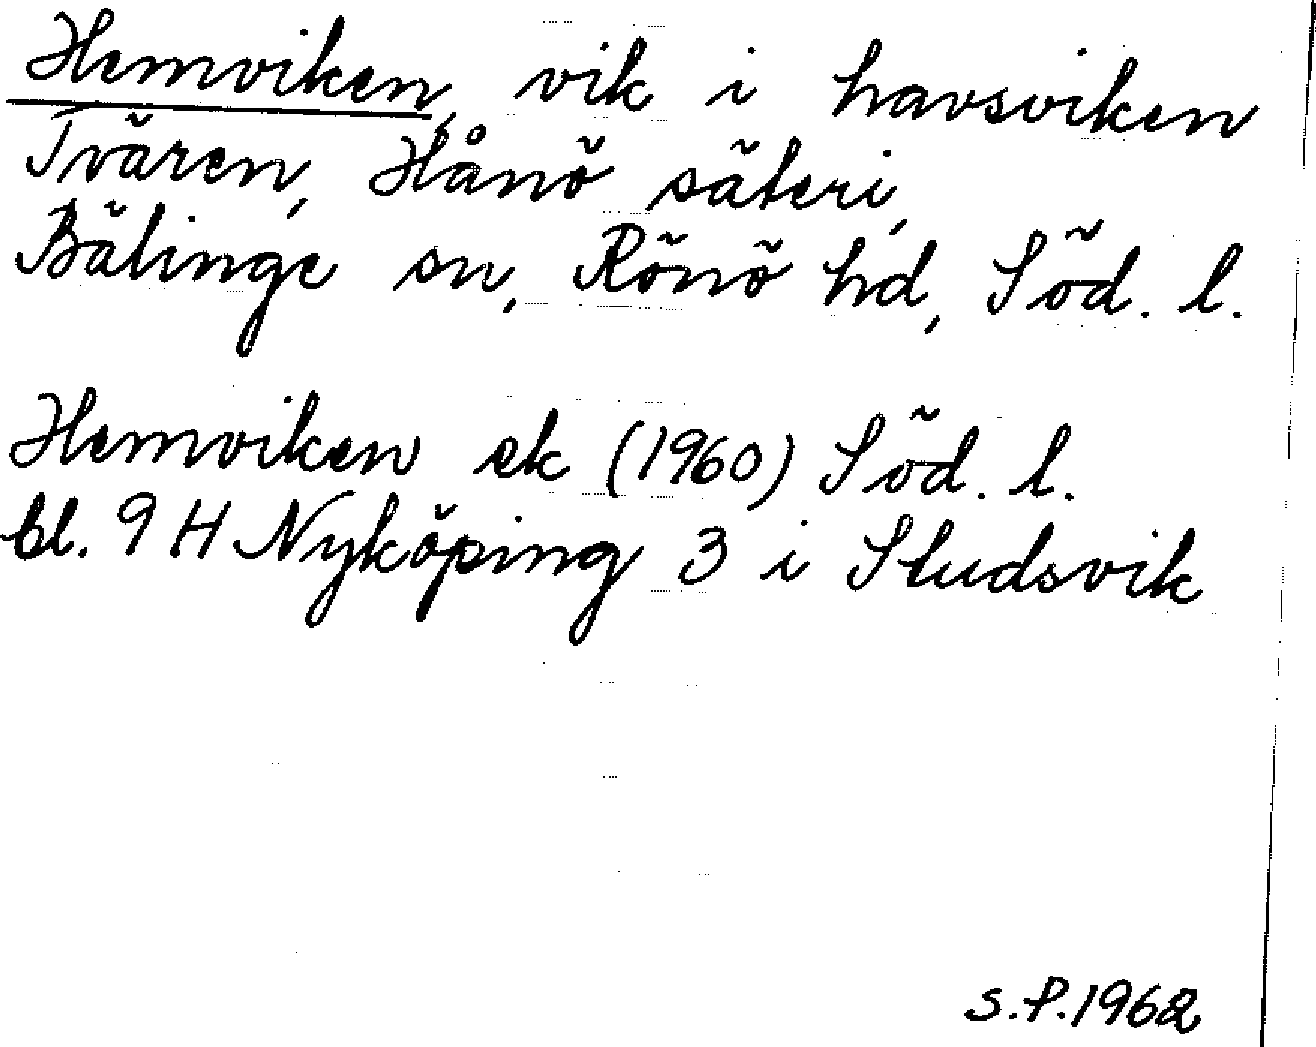 Hemviken, vik i havsviken
Tvären, Hånö säteri,
Bälinge sn, Rönö hd, Söd. l.
Hemviken ek (1960) Söd. l.
bl. 9 H Nyköping 3 i Studsvik
S.P. 1962